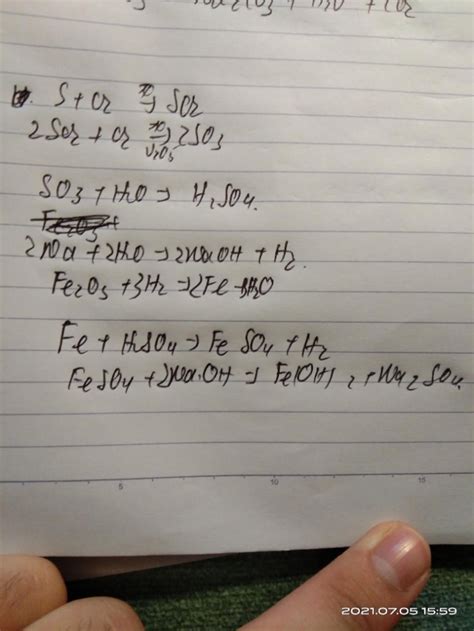 b. S + O2 t° → SO2
2SO2 + O2 t° → V2O5 2SO3
SO3 + H2O → H2SO4.
Fe2O3 +
2Na + 2H2O → 2NaOH + H2.
Fe2O3 + 3H2 → 2Fe + 3H2O
Fe + H2SO4 → FeSO4 + H2
FeSO4 + 2NaOH → Fe(OH)2 + Na2SO4
5 10 15
2021.07.05 15:59